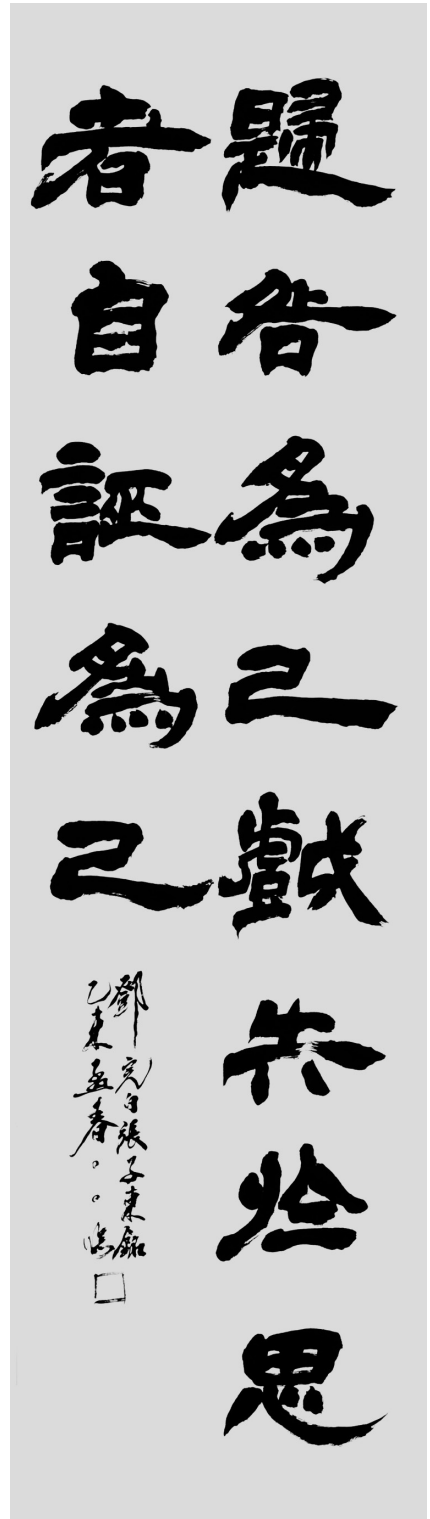 歸咎為己戲失於思
者自誣為己
鄧完白張子東銘
乙未孟春。。臨